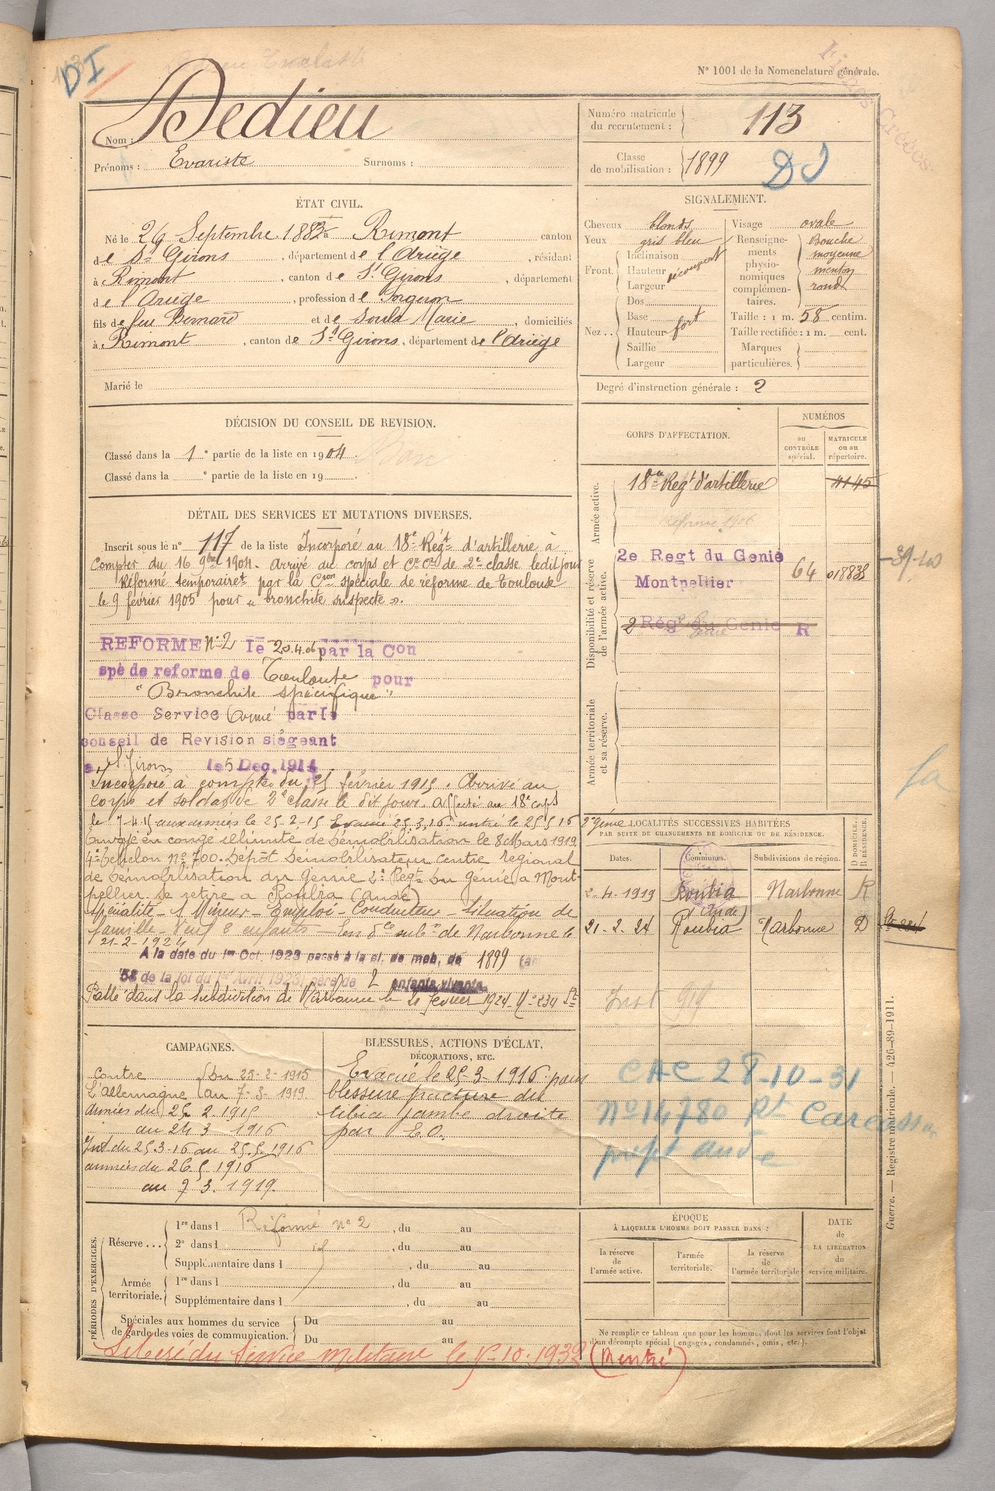 DI
N° 1001 de la Nomenclature générale.
Nom : Dedieu
Prénoms : Evariste Surnoms :
Numéro matricule du recrutement : 113
Classe de mobilisation : 1899
DI
ÉTAT CIVIL.
Né le 29 Septembre 1882 à Rimont canton
de St Girons, département de l'Ariège, résidant
à Rimont, canton de St Girons, département
de l'Ariège, profession de
fils de feu Bernard et de Soula Marie, domiciliés
à Rimont, canton de St Girons, département de l'Ariège
Marié le
SIGNALEMENT.
Cheveux blonds
Yeux gris bleu
Front. Inclinaison
Hauteur
Largeur
Dos
Nez.. Base
Hauteur fort
Saillie
Largeur
Visage ovale
Renseignements physionomiques complémentaires. Bouche moyenne menton rond
Taille : 1 m. 58 centim.
Taille rectifiée : 1 m. cent.
Marques particulières.
Degré d'instruction générale : 2
DÉCISION DU CONSEIL DE REVISION.
Classé dans la 1e partie de la liste en 1904.
Classé dans la e partie de la liste en 19
DÉTAIL DES SERVICES ET MUTATIONS DIVERSES.
Inscrit sous le n° 117 de la liste Incorporé au 18e Régt d'artillerie à
compter du 16 9bre 1904. Arrivé au corps et Cer de 2e classe ledit jour
Réformé temporairet par la Cion spéciale de réforme de Toulouse
le 9 février 1905 pour « bronchite suspecte ».
REFORME N°2 le 20.4.06 par la Con
spé de reforme de Toulouse pour
"Bronchite spécifique"
Classé Service Armé par le
conseil de Revision siégeant
a St Girons le 5 Dec. 1914
Incorporé à compter du 25 février 1915. Arrivé au
corps et soldat de 2e classe le dit jour. Affecté au 18e corps
le 7-4-15 aux armées le 25-2-15 Evacué 25.3.16 rentré le 25.5.16
Envoyé en congé illimité de démobilisation le 8 Mars 1919
4e échelon n° 700. Dépôt démobilisateur centre régional
de démobilisation du Génie 2e Régt du Génie à Montpellier
se retire à Roubia (Aude)
Spécialité - 1 Mineur - Emploi - Conducteur - Situation de
famille - 2 enfants - de Narbonne le
21-2-1924
A la date du 1er Oct. 1923 passé à la cl. de mob. de 1899 (art
58 de la loi du 1er Avril 1923) père de 2 enfants vivants
Passé dans la subdivision de Narbonne le 21 février 1924
CORPS D'AFFECTATION.
NUMÉROS
du CONTRÔLE spécial.
MATRICULE ou au répertoire.
Armée active.
18e Regt d'artillerie
Réformé 1906
Disponibilité et réserve de l'armée active.
2e Regt du Genie
Montpellier
64 018838
2 Régt du Genie R
Armée territoriale et sa réserve.
LOCALITÉS SUCCESSIVES HABITÉES
PAR SUITE DE CHANGEMENTS DE DOMICILE OU DE RÉSIDENCE.
Dates. Communes. Subdivisions de région. D DOMICILE. R RÉSIDENCE.
2-4-1919 Roubia (Aude) Narbonne R
21-2-24 Roubia Narbonne D
CAC 28-10-31
N° 14780 Rt Carcassonne
préft aude
CAMPAGNES.
contre l'Allemagne
du 25-2-1915
au 7-3-1919
Armées du 25 2 1915
au 24 3 1916
Int du 25.3.16 au 25.5.1916
armées du 26.5.1916
au 7.3.1919.
BLESSURES, ACTIONS D'ÉCLAT,
DÉCORATIONS, ETC.
Evacué le 25-3-1916 pour
blessure fracture du
tibia jambe droite
par E.O.
PÉRIODES D'EXERCICES.
Réserve... 1re dans l Réformé n° 2, du au
2e dans l, du au
Supplémentaire dans l, du au
Armée territoriale. 1re dans l, du au
Supplémentaire dans l, du au
Spéciales aux hommes du service
de garde des voies de communication. Du au
Du au
ÉPOQUE
À LAQUELLE L'HOMME DOIT PASSER DANS :
la réserve de l'armée active.
l'armée territoriale.
la réserve de l'armée territoriale.
DATE de LA LIBÉRATION du service militaire.
Ne remplir ce tableau que pour les hommes dont les services font l'objet d'un décompte spécial (engagés, condamnés, omis, etc.).
Libéré du Service militaire le 15-10-1932
Guerre. — Registre matricule. — 426-89-1911.